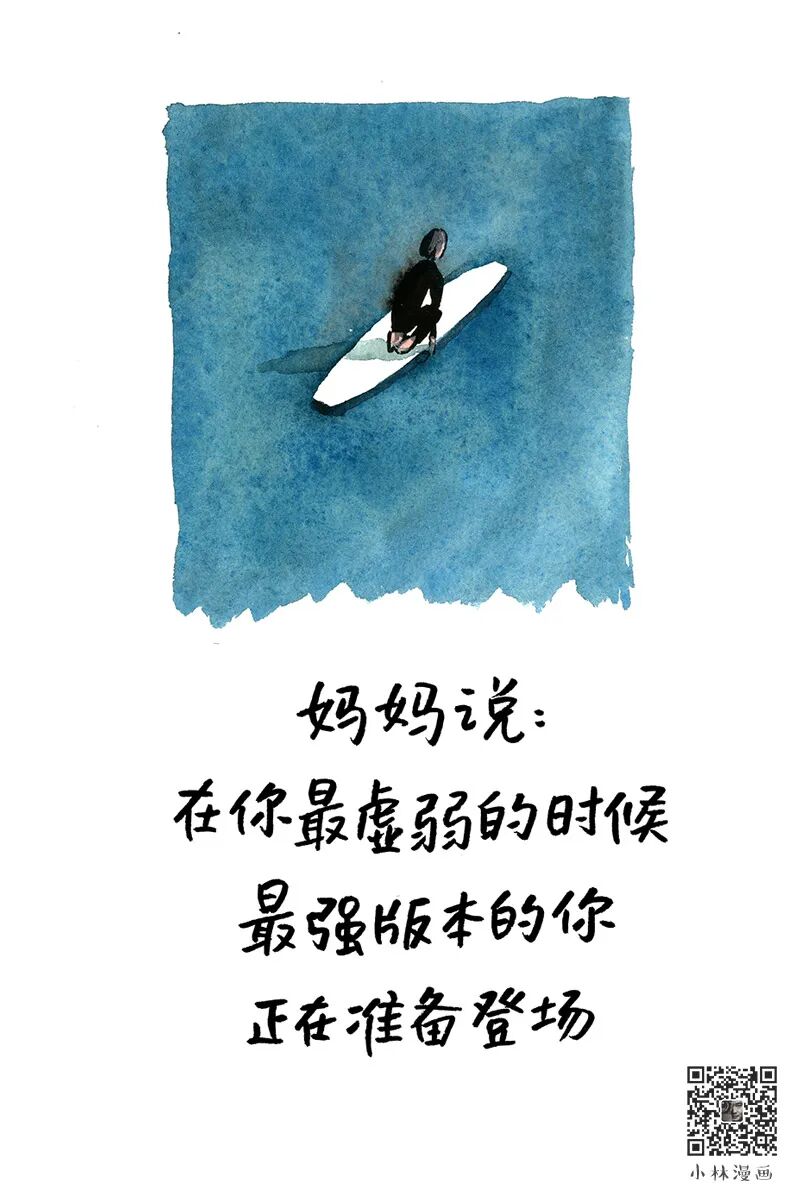 妈妈说:
在你最虚弱的时候
最强版本的你
正在准备登场
小林漫画